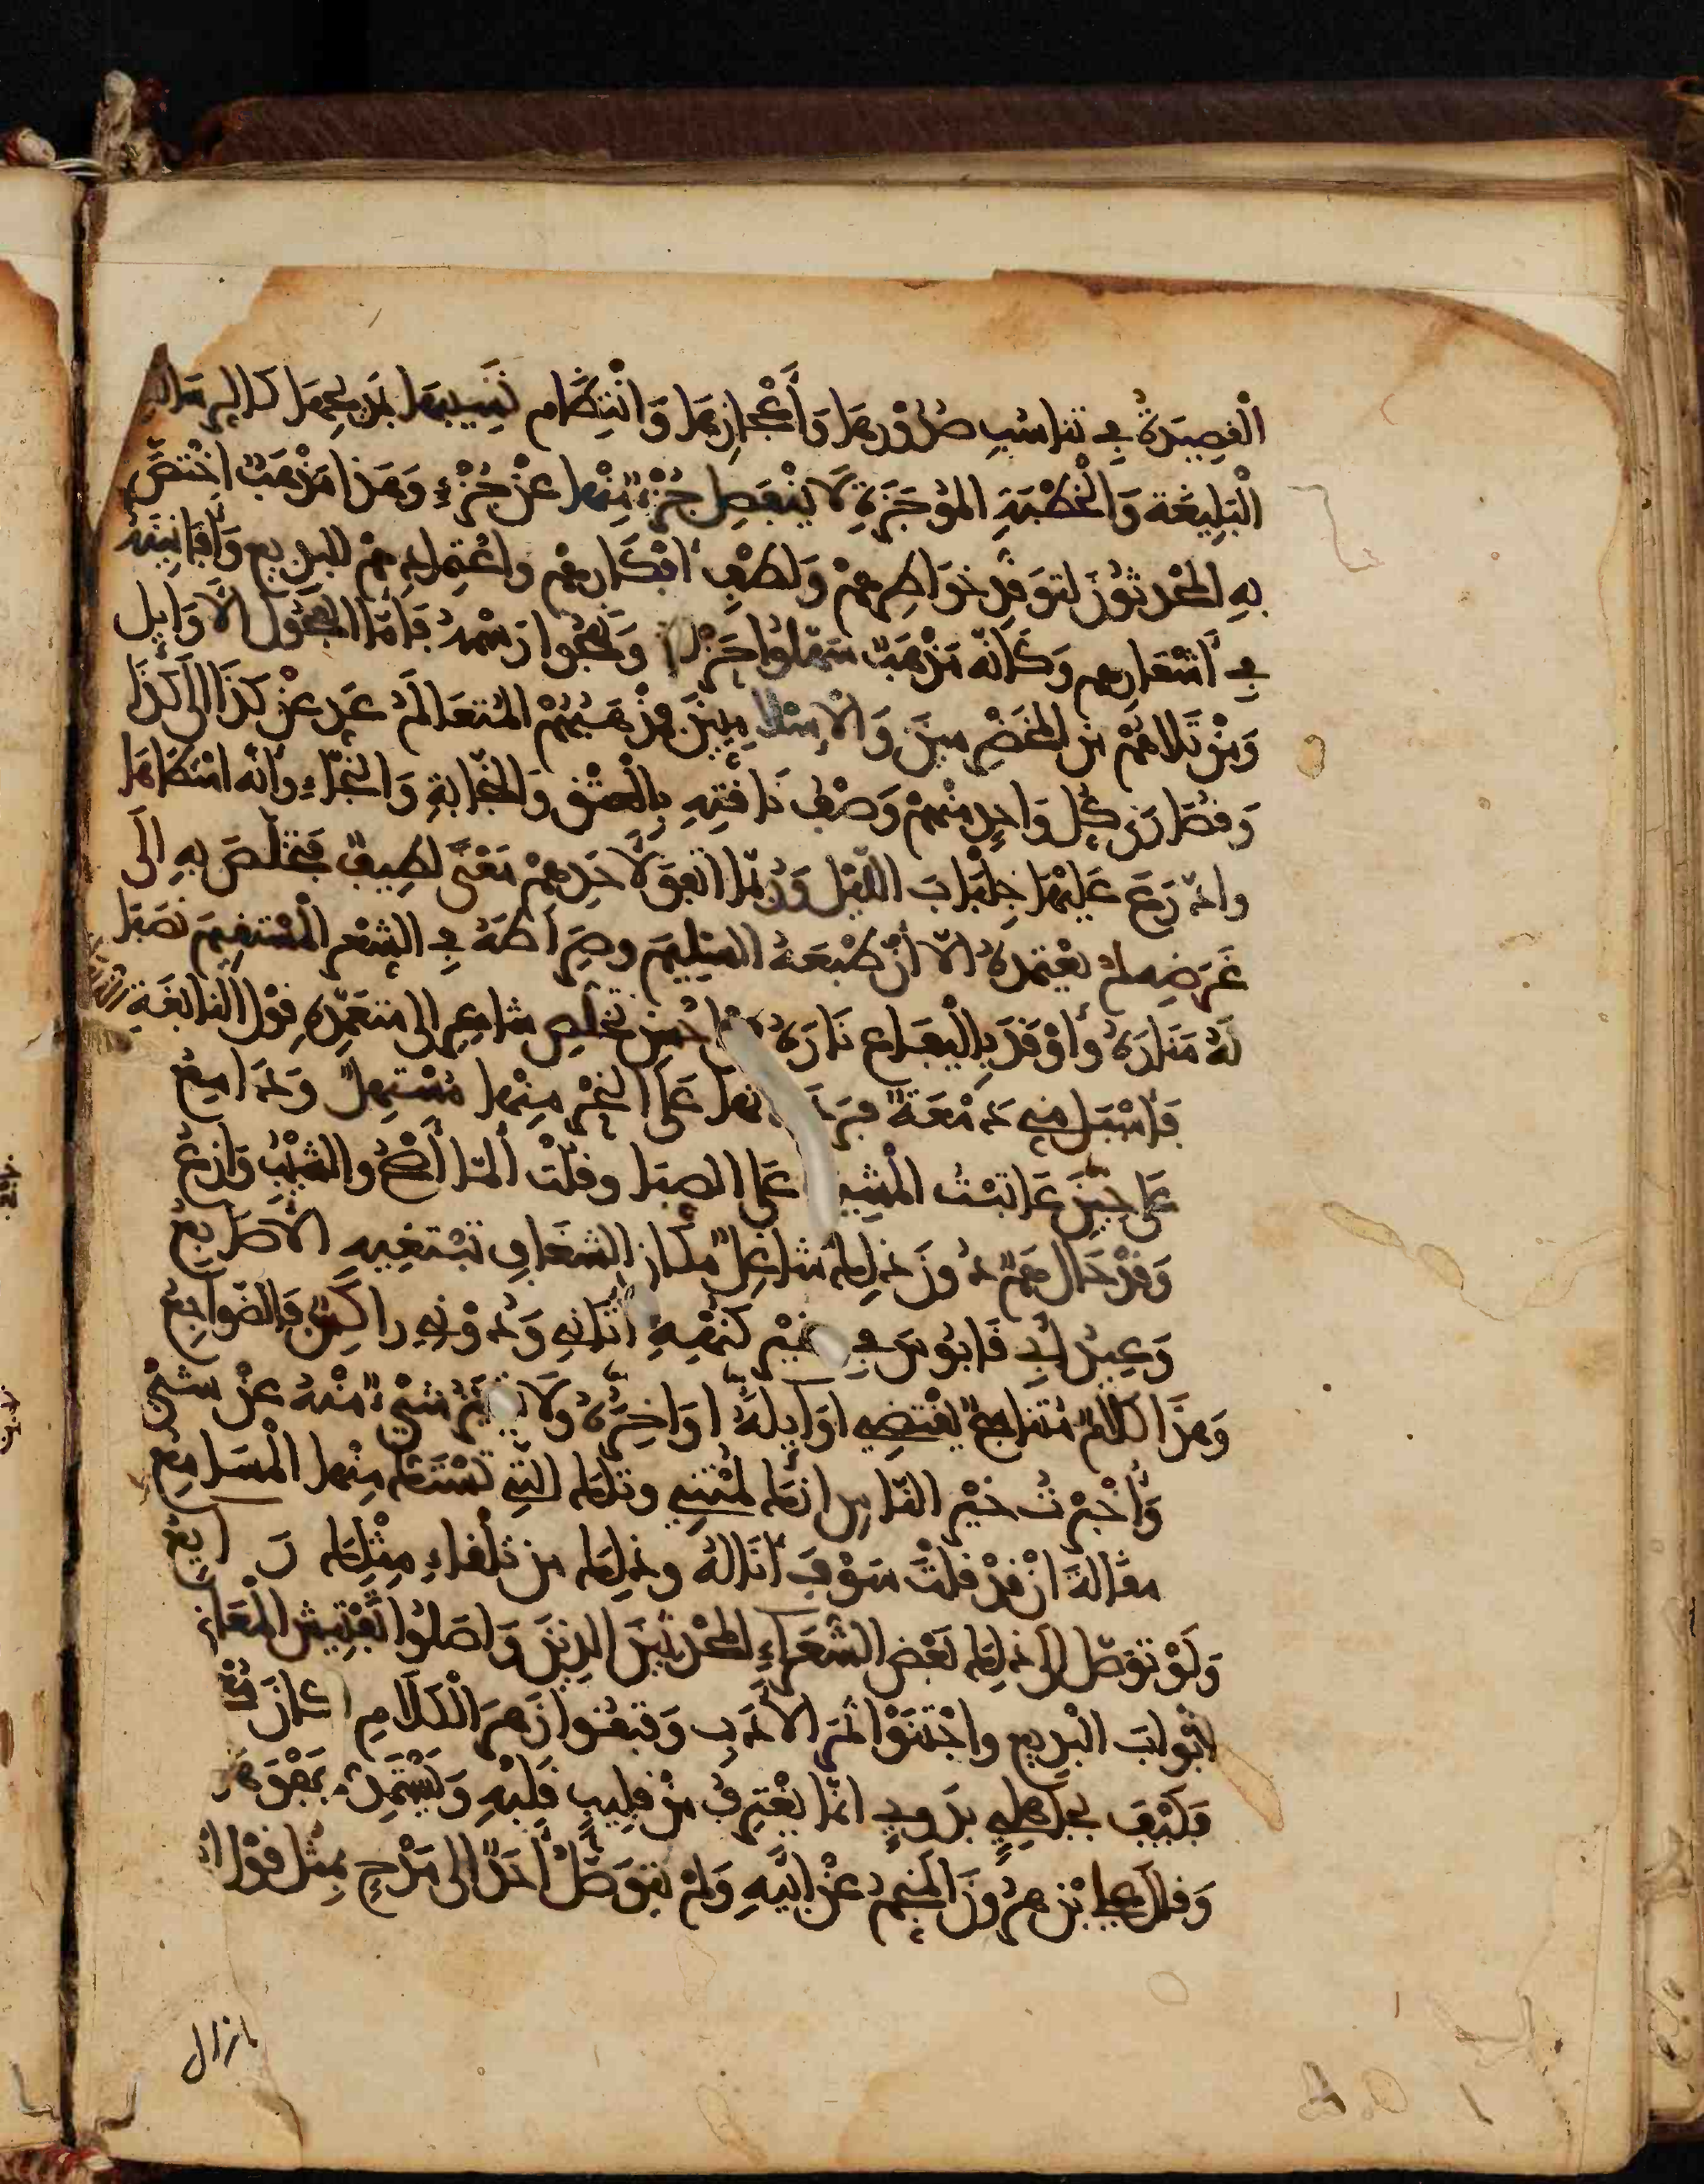 الْقصِيدَةُ فِي تناسُبِ صُدُورِهَا وَأَعْجازِهَا وَانْتِظَام نَسِيبِهَا بمَدِيحِهَا كالرسالة
الْبَلِيغَة وَالْخُطْبَةِ المُوجَزَةِ لَا يَنْفَصِل جُزْءٌ مِنْها عَنْ جُزْءٍ وَهَذا مَذْهَبٌ اخْتَصَّ
بِهِ المُحْدَثُونَ لتَوَقُّدِ خوَاطِرِهِمْ وَلُطْفِ أَفْكَارِهِمْ واعْتِمادِهِمْ للبديع وَأَفَانِينِهِ
فِي أَشْعَارِهِم وَكَأنّه مَذْهَبٌ سَهّلُوا حَزْنَهُ وَنَهَجُوا رَسْمَهُ فَأَمّا الفُحُولُ الأَوَايِل
وَمَنْ تَلاهُمْ مِن المُخَضْرَمِينَ وَالإِسْلَامِيِّينَ فَمَذْهَبُهُمُ المُتَعَالَمُ عَدِّ عَنْ كَذَا إلَى كَذَا
وَقُصَارَى كُلِّ وَاحِدٍ مِنْهُمْ وَصْفُ نَاقَتِهِ بِالْعِتْقِ وَالنَّجابةِ وَالنَّجَاءِ وأنّه امْتطَاهَا
وادّرَعَ عَلَيْهَا جِلْبَابَ اللّيْلِ وَرُبّمَا اتّفَقَ لأَحَدِهِمْ مَعْنًى لَطِيفٌ فتخَلّصَ بِهِ إلَى
غَرَضٍ لمْ يَعْتَمِدْهُ الّا أنّ طَبْعَهُ السَلِيم وصِرَاطَهُ فِي الشِّعْرِ الْمُسْتقِيمَ نَصَبَا
لَهُ مَنَارَهُ وَأَوْقَدَ بِالْيَفَاعِ نَارَهُ احْسن تخَلُّصِ شاعِرٍ إلى مُتَعَمَّدِهِ قوْل النابِغَةِ
فَأَسْبَلَ مني دَمْعَةً فرَدَدْتُها عَلَى النّحْرِ مِنْها مُسْتهِلٌّ وَدَامِعُ
عَلَى حِينَ عَاتَبْتُ الْمشِيبَ عَلى الصبَا وقلْتُ ألمّا أَصْحُ والشّيْبُ وَازِعُ
وَقَدْ حَال هَمٌّ دُونَ ذلِك شاغِلٌ مكان الشغَافِ تَبْتغِيهِ الأصَابِعُ
وَعِيدُ أَبِي قَابُوسَ فِي غَيْرِ كُنْهِهِ أَتَانِي وَدُونِي راكِسٌ فَالضّوَاجِعُ
وَهذا كلامٌ مُتَنَاسِجٌ يَقْتضِي اوَايِلهُ اوَاخِرُهُ وَلَا يتَمَيَّزُ شَيْءٌ مِنْهُ عَنْ شَيْ
وَأُخْبِرْتُ خيْرَ النّاسِ انّك لُمْتَنِي وتلك التي تَسْتَكُّ مِنْها الْمَسَامِعُ
مقَالةَ انْ قَدْ قلْتَ سَوْفَ أنَالهُ وذلِك من تلْقاءِ مِثْلِكَ رَايعُ
وَلَوْ توَصّلَ إلى ذلِك بَعْضُ الشُّعَرَاءِ المُحْدَثينَ الذِينَ وَاصَلُوا تَفْتِيشَ الْمَعَانِي
ابْوابَ الْبَدِيع واجْتَنَوْا ثمَرَ الآدَابِ وَفتَقُوا زَهَرَ الْكَلَامِ لكانَ
فَكَيْفَ بجَاهِلِيٍّ بَدَوِيٍّ انّمَا يَغْتَرِفُ مِنْ قلِيبِ قَلْبِهِ وَيَسْتَمِدُّ
وَقال عليّ ابْنُ هرُونَ المُنَجِّمُ عَنْ أَبِيهِ وَلم يتوَصَّلْ أَحَدٌ إلى مَدْحٍ بمثْل قوْل
ازال